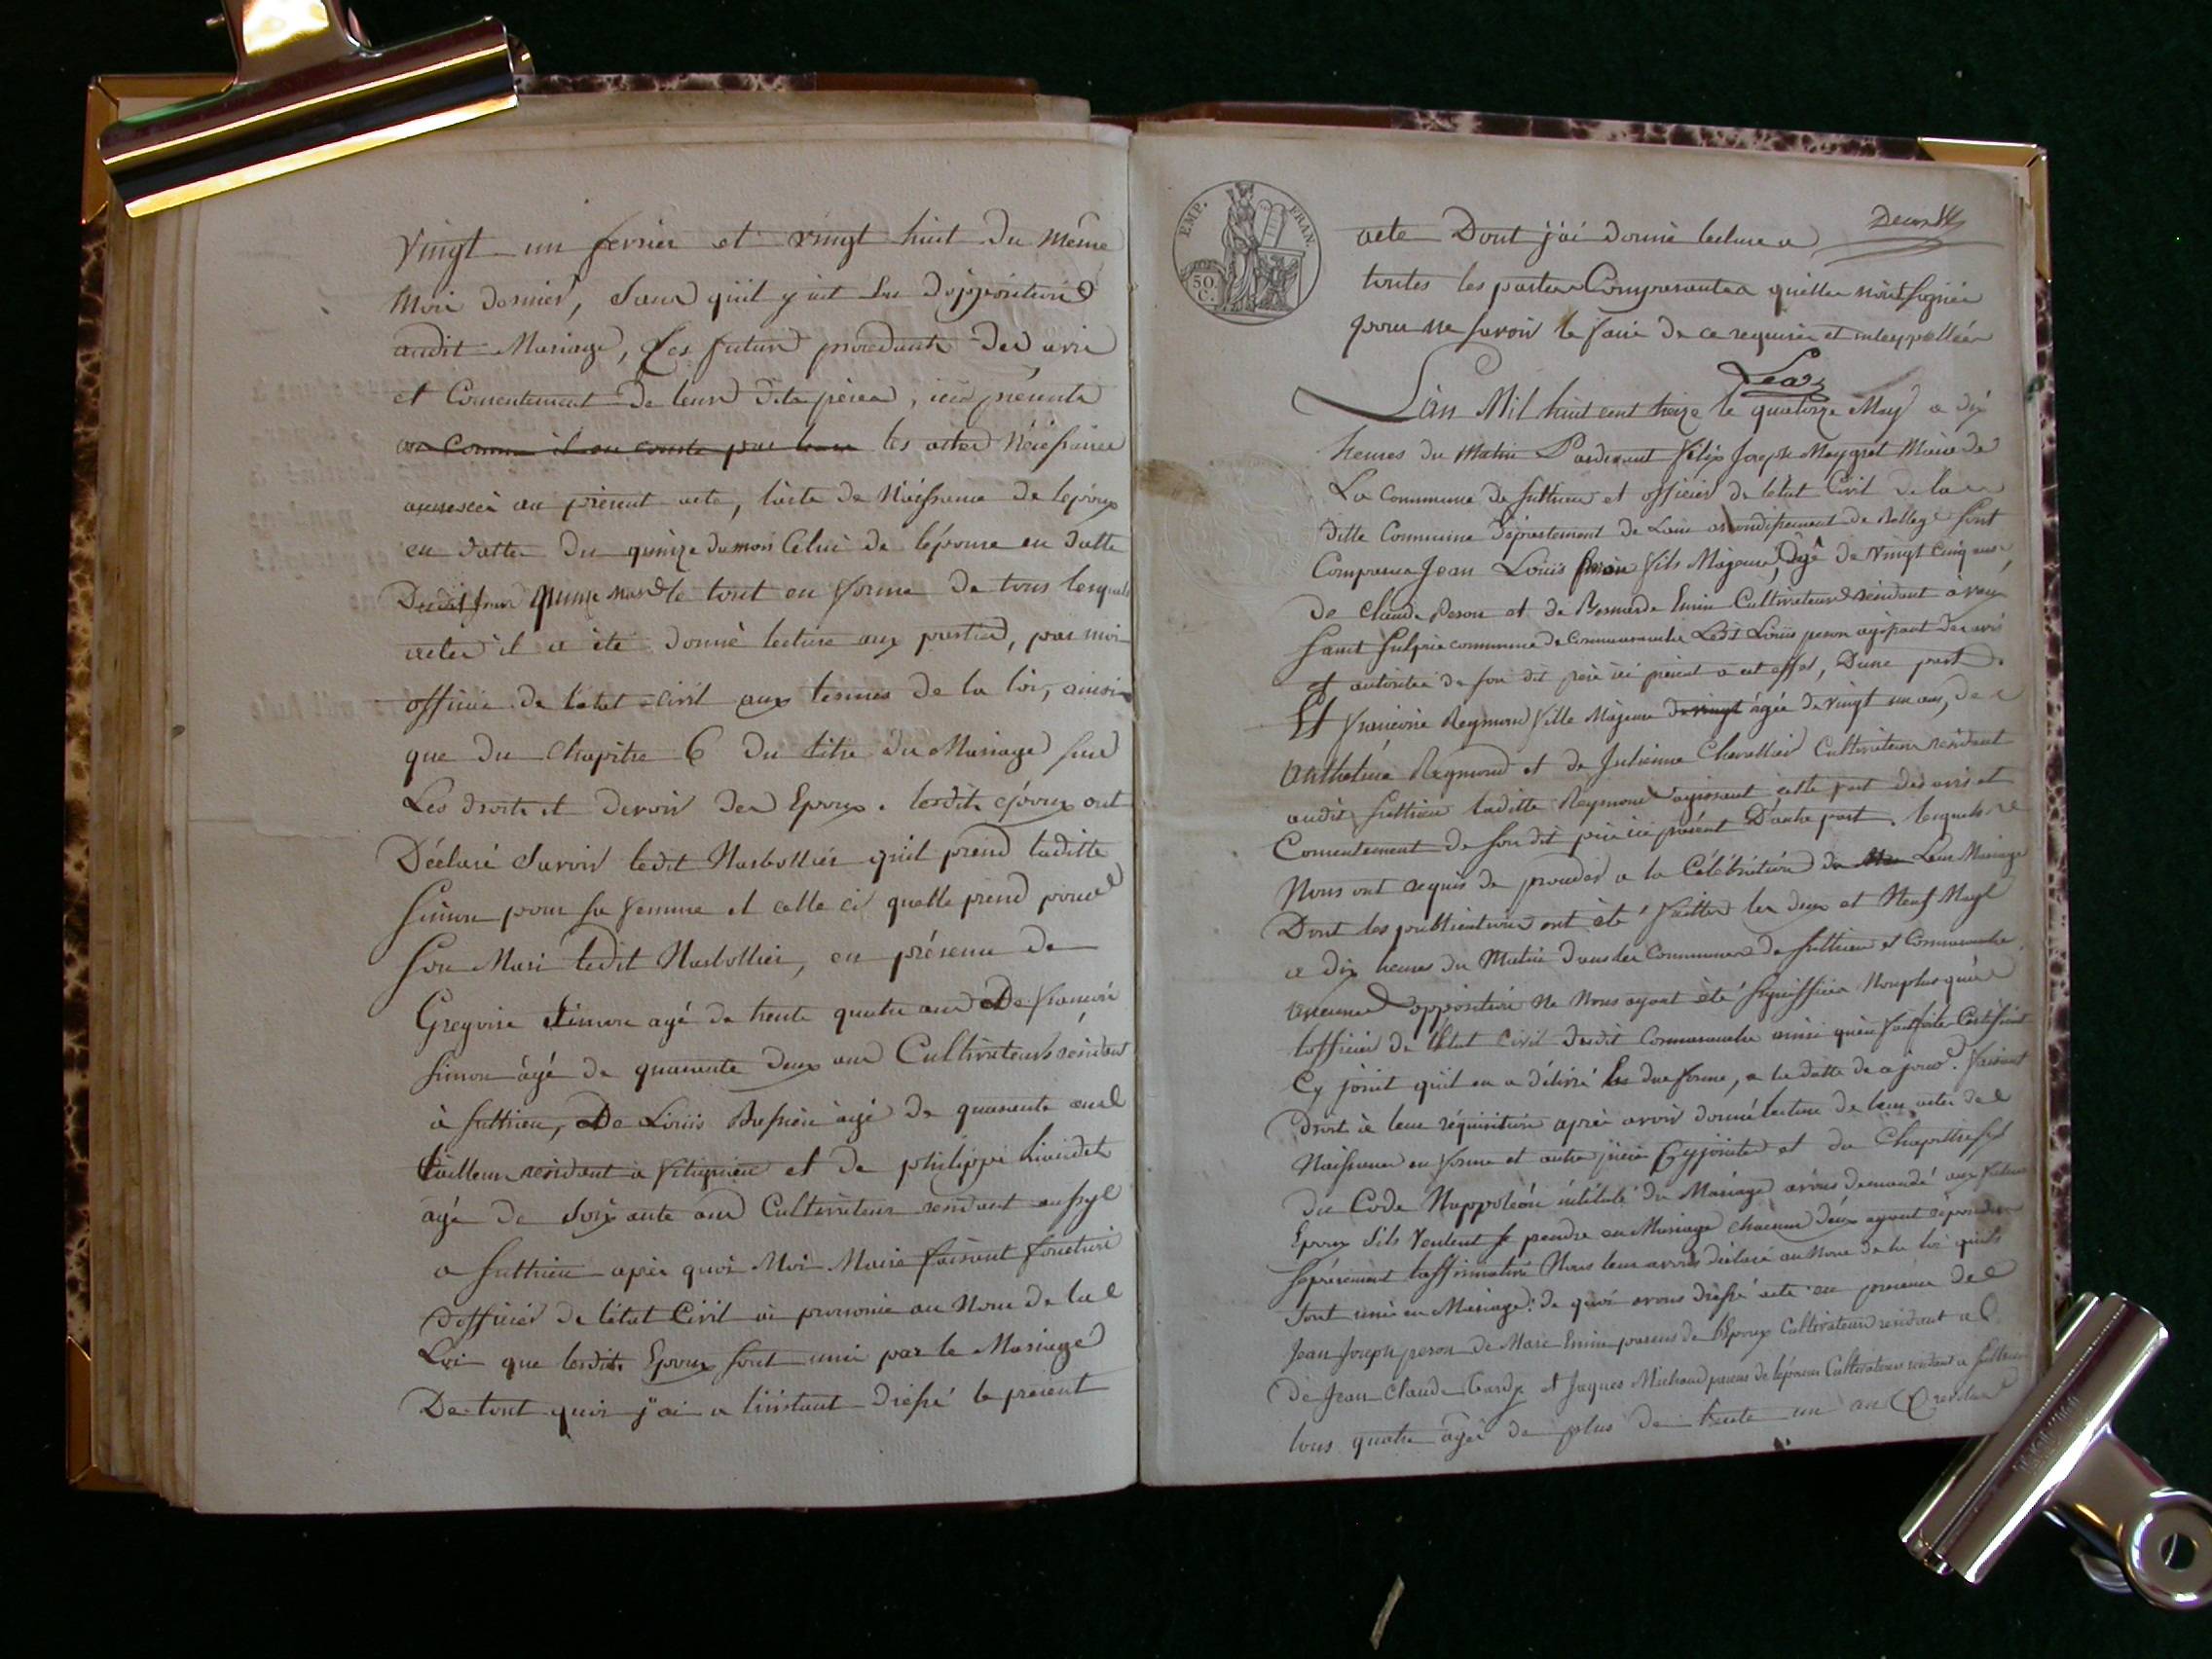 vingt un fevrier et vingt huit du même
Moi dernier, sans quil y ait eu dopposition
audit Mariage, Les futurs procedants des avis
et Consentement de leurs dits pères, ici présents
Comme il en conste par les actes Nécessaires
annexés au présent acte, l'acte de Naissance de lepoux
en datte du quinze du mois Celui de lépouse en datte
le tout en forme de tous lesquels
actes il a été donné lecture aux parties, par moi
officier de l'etat civil aux termes de la loi, ainsi
que du Chapitre 6 du titre du Mariage sur
Les droits et devoir des Epoux. lesdits époux ont
Déclaré Savoir ledit Narbollier quil prend laditte
Simon pour sa femme et celle ci quelle prend pour
Son Mari ledit Narbollier, en présence de
Gregoire Simon agé de trente quatre ans De francois
Simon âgé de quarante deux ans Cultivateurs résidant
à Suthrieu, De Louis agé de quarante ans
tailleur résidant a et de philippe
agé de Soixante ans Cultivateur residant aussy
a Suthrieu après quoi Moi Maire faisant fonction
dofficier de l'état Civil ai prononcé au Nom de la
Loi que lesdits Epoux sont unis par le Mariage
De tout quoi j'ai a linstant dressé le présent
EMP. FRAN.
50 C.
acte Dont j'ai donné lecture a
toutes les parties Comparantes quelles n'ont signées
pour ne savoir le faire de ce requises et interppellées
Lan Mil huit cent treize le quatorze May a dix
heures du Matin Pardevant félix Joseph Meygret Maire de
La Commune de Suthrieu et officier de letat Civil de la
ditte Commune département de Lain arrondissement de Belley Sont
Comparus Jean Louis peron fils Majeur, Agé de vingt cinq ans,
de Claude Peron et de Bernarde Emin Cultivateurs résidant à
Saint Sulpice commune de Ledit Louis peron agissant des avis
et autorités de son dit père ici présent a cet effet, Dune part.
Et francoise Reymond fille Majeure de vingt âgée de vingt un ans, de
Anthelme Reymond et de Julienne Chevallier Cultivateurs résidant
audit Suthrieu laditte Reymond agissant cette part des avis et
Consentement de son dit père ici présent D'autre part. lesquels
Nous ont requis de proceder a la Célébration de Leur Mariage
Dont les publications ont été faittes les deux et Neuf May
a dix heures du Matin dans les Communes de Suthrieu et
aucune opposition ne Nous ayant été signiffiée Nonplus qu'à
lofficier de l'Etat Civil dudit ainsi quen fait foi le Certificat
Cy joint quil en a délivré en due forme, a la datte de ce jour. faisant
Droit à leur réquisition après avoir donné lecture de leurs actes de
Naissance en forme et autres pièces Cyjointes et du Chapitre six
du Code Nappoléon intitulé du Mariage avons demandé aux futurs
Epoux Sils veulent se prendre en Mariage chacun deux ayant répondu
Séparément laffirmative Nous leur avons déclaré au Nom de la loi quils
Sont unis en Mariage: de quoi avons dressé acte en presence de
Jean Joseph peron de Marc Emin parens de l'Epoux Cultivateurs residant a
De Jean Claude et Jaques Michaud parens de lépouse Cultivateurs residant a Suthrieu
tous quatre âgés de plus de trente un an